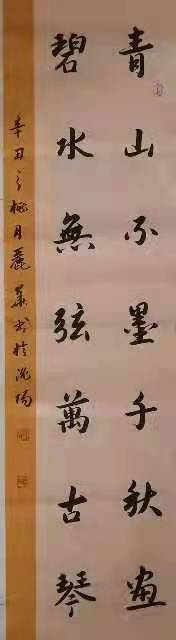 青山不墨千秋畫
碧水無弦萬古琴
辛丑之桃月麗華書於沈陽